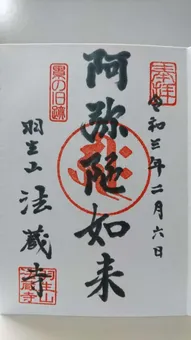 奉拝
令和三年二月六日
阿弥陀如来
墨の旧跡
羽生山
法蔵寺
羽生山
法蔵寺